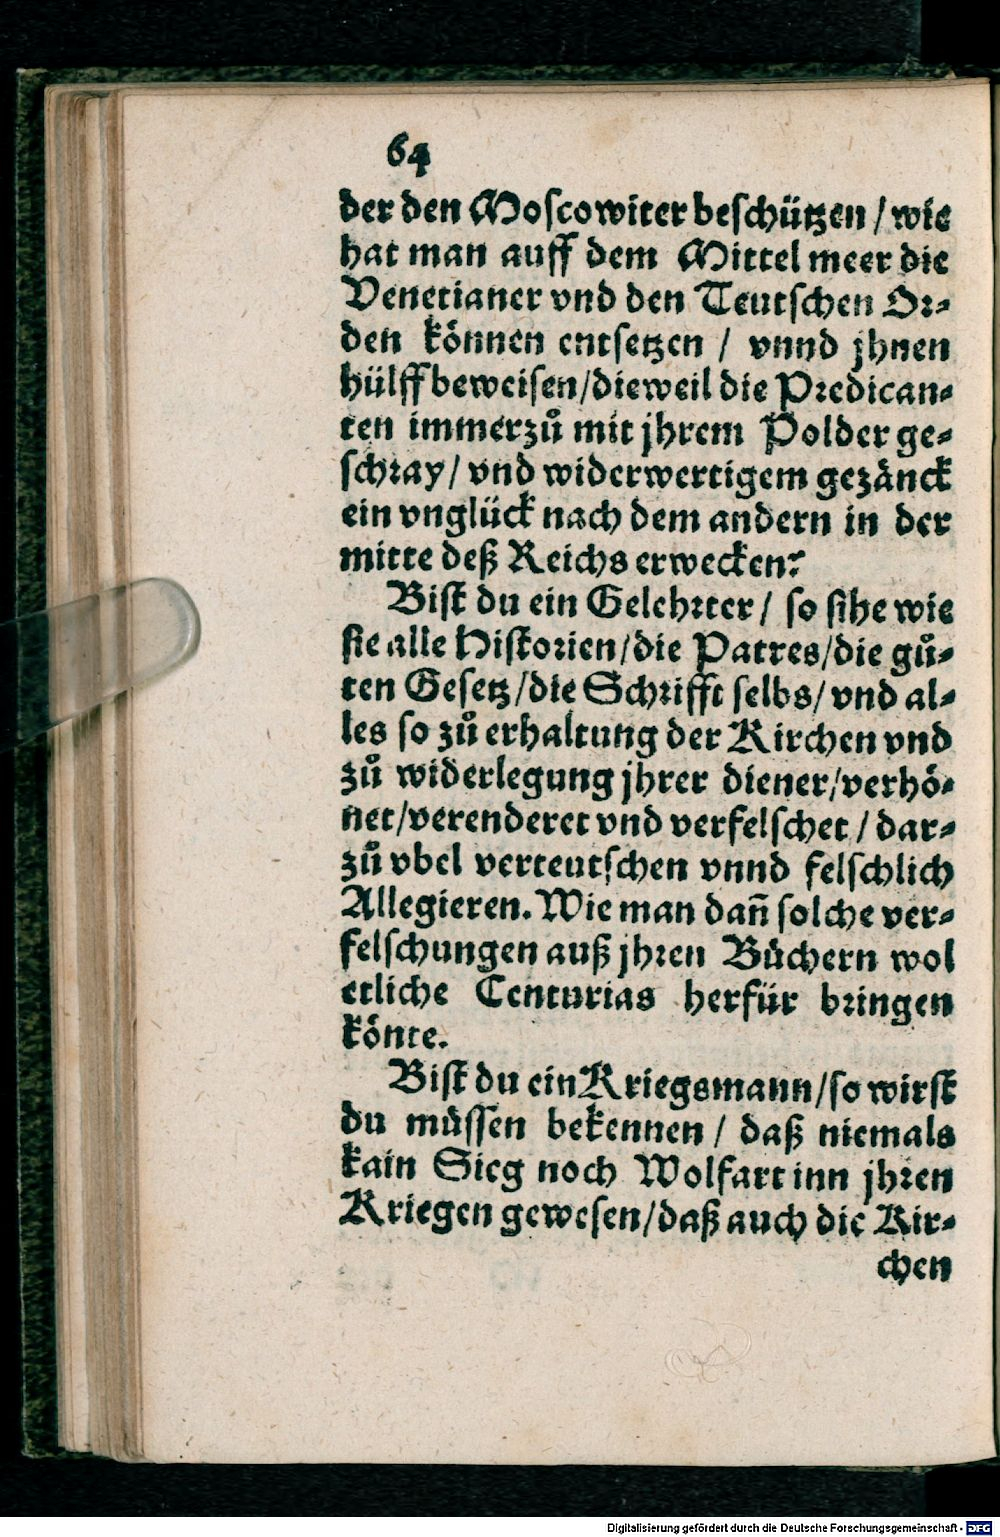 64
der den Moscowiter beschützen / wie
hat man auff dem Mittel meer die
Venetianer vnd den Teutschen Or⸗
den können entsetzen / vnnd jhnen
hülff beweisen/dieweil die Predican⸗
ten immerzů mit jhrem Polder ge⸗
schray/ vnd widerwertigem gezänck
ein vnglück nach dem andern in der
mitte deß Reichs erwecken?
Bist du ein Gelehrter/ so sihe wie
sie alle Historien/die Patres/die gů⸗
ten Gesetz/die Schrifft selbs/ vnd al⸗
les so zů erhaltung der Kirchen vnd
zů widerlegung jhrer diener/verhö⸗
net/verenderet vnd verfelschet / dar⸗
zů vbel verteutschen vnnd felschlich
Allegieren. Wie man dañ solche ver⸗
felschungen auß jhren Büchern wol
etliche Centurias herfür bringen
könte.
Bist du ein Kriegsmann/so wirst
du müssen bekennen / daß niemals
kain Sieg noch Wolfart inn jhren
Kriegen gewesen/daß auch die Kir⸗
chen
Digitalisierung gefördert durch die Deutsche Forschungsgemeinschaft - DFG